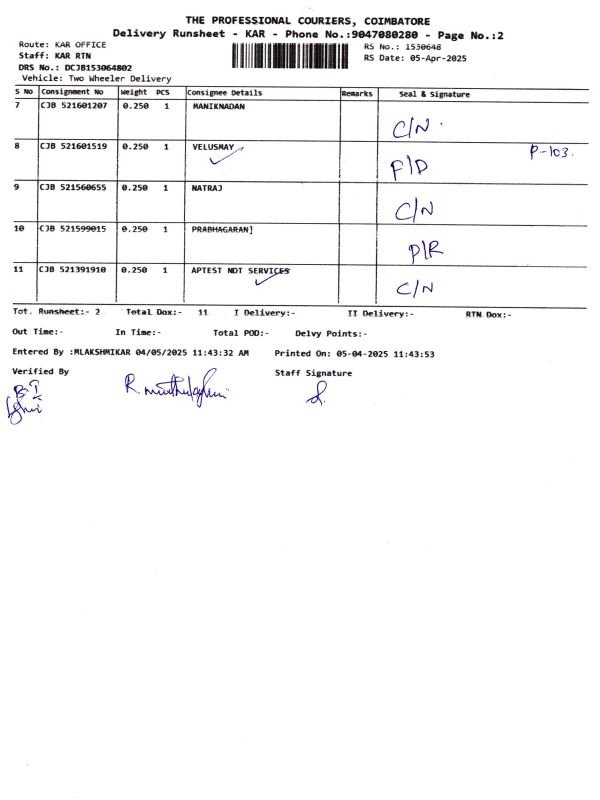 THE PROFESSIONAL COURIERS, COIMBATORE
Delivery Runsheet - KAR - Phone No.:9047080280 - Page No.:2
Route: KAR OFFICE
RS No.: 1530648
Staff: KAR RTN
RS Date: 05-Apr-2025
DRS No.: DCJB153064802
Vehicle: Two Wheeler Delivery
S No Consignment No Weight PCS Consignee Details Remarks Seal & Signature
7 CJB 521601207 0.250 1 MANIKNADAN C/N
8 CJB 521601519 0.250 1 VELUSMAY F/D P-103
9 CJB 521560655 0.250 1 NATRAJ C/N
10 CJB 521599015 0.250 1 PRABHAGARAN] P/R
11 CJB 521391910 0.250 1 APTEST NDT SERVICES C/N
Tot. Runsheet:- 2 Total Dox:- 11 I Delivery:- II Delivery:- RTN Dox:-
Out Time:- In Time:- Total POD:- Delvy Points:-
Entered By :MLAKSHMIKAR 04/05/2025 11:43:32 AM Printed On: 05-04-2025 11:43:53
Verified By Staff Signature